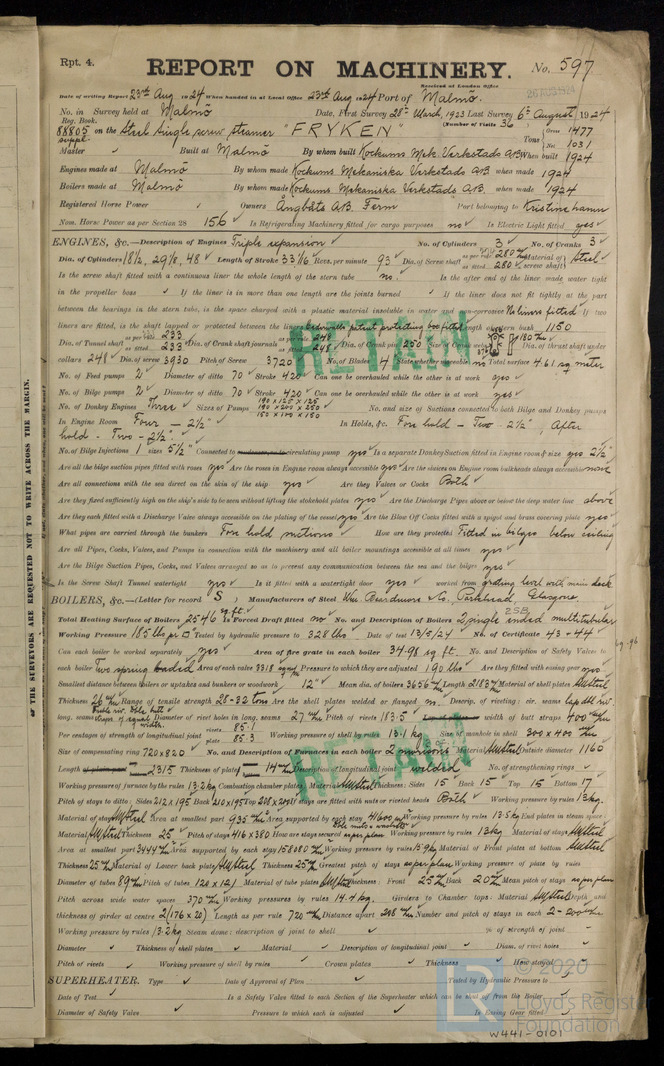 Rpt. 4.
REPORT ON MACHINERY.
No. 597
Received at London Office
Date of writing Report 23rd Aug 1924 When handed in at Local Office 23rd Aug 1924 Port of Malmö.
No. in Survey held at Malmö Date, First Survey 28th March, 1923 Last Survey 6th August 1924
Reg. Book. (Number of Visits 36)
88805 on the Steel single screw steamer "FRYKEN" Tons Gross 1477
suppl. Net 1031
Master Built at Malmö By whom built Kockums Mek. Verkstads A/B When built 1924
Engines made at Malmö By whom made Kockums Mekaniska Verkstads A/B. when made 1924
Boilers made at Malmö By whom made Kockums Mekaniska Verkstads A/B. when made 1924
Registered Horse Power Owners Ångbåts A/B. Ferm Port belonging to Kristinehamn
Nom. Horse Power as per Section 28 156 Is Refrigerating Machinery fitted for cargo purposes no Is Electric Light fitted yes
ENGINES, &c.—Description of Engines Triple expansion No. of Cylinders 3 No. of Cranks 3
Dia. of Cylinders 18½, 29⅛, 48 Length of Stroke 33 1/16 Revs. per minute 93 Dia. of Screw shaft as per rule 280 as fitted 280 Material of screw shaft Steel
Is the screw shaft fitted with a continuous liner the whole length of the stern tube no. Is the after end of the liner made water tight
in the propeller boss If the liner is in more than one length are the joints burned If the liner does not fit tightly at the part
between the bearings in the stern tube, is the space charged with a plastic material insoluble in water and non-corrosive No liners fitted If two
liners are fitted, is the shaft lapped or protected between the liners Cederwalls patent protecting box fitted Length of stern bush 1150
Dia. of Tunnel shaft as per rule 233 as fitted 233 Dia. of Crank shaft journals as per rule 248 as fitted 248 Dia. of Crank pin 250 Dia. of thrust shaft under
collars 248 Dia. of screw 3930 Pitch of Screw 3720 No. of Blades 4 State whether moveable no Total surface 4.61 sq meter
No. of Feed pumps 2 Diameter of ditto 70 Stroke 420 Can one be overhauled while the other is at work yes
No. of Bilge pumps 2 Diameter of ditto 70 Stroke 420 Can one be overhauled while the other is at work yes
No. of Donkey Engines Three Sizes of Pumps 190 x 125 x 125 190 x 200 x 250 150 x 100 x 150 No. and size of Suctions connected to both Bilge and Donkey pumps
In Engine Room Four – 2½" In Holds, &c. Fore hold – Two – 2½", After
hold – Two – 2½".
No. of Bilge Injections 1 sizes 5½" Connected to circulating pump yes Is a separate Donkey Suction fitted in Engine room & size yes 2½"
Are all the bilge suction pipes fitted with roses yes Are the roses in Engine room always accessible yes Are the sluices on Engine room bulkheads always accessible none
Are all connections with the sea direct on the skin of the ship yes Are they Valves or Cocks Both
Are they fixed sufficiently high on the ship's side to be seen without lifting the stokehold plates yes Are the Discharge Pipes above or below the deep water line above
Are they each fitted with a Discharge Valve always accessible on the plating of the vessel yes Are the Blow Off Cocks fitted with a spigot and brass covering plate yes
What pipes are carried through the bunkers Fore hold suctions How are they protected Fitted in bilges below ceiling
Are all Pipes, Cocks, Valves, and Pumps in connection with the machinery and all boiler mountings accessible at all times yes
Are the Bilge Suction Pipes, Cocks, and Valves arranged so as to prevent any communication between the sea and the bilges yes
Is the Screw Shaft Tunnel watertight yes Is it fitted with a watertight door yes worked from grating level with main deck
BOILERS, &c.—(Letter for record S) Manufacturers of Steel Wm. Beardmore & Co., Parkhead, Glasgow.
2SB.
Total Heating Surface of Boilers 2546 sq.ft. Is Forced Draft fitted no No. and Description of Boilers 2, single ended multitubular
Working Pressure 185 lbs pr □" Tested by hydraulic pressure to 328 lbs Date of test 13/5/24 No. of Certificate 43 + 44
Can each boiler be worked separately yes Area of fire grate in each boiler 34.98 sq. ft. No. and Description of Safety Valves to
each boiler Two spring loaded Area of each valve 3318 Pressure to which they are adjusted 190 lbs Are they fitted with easing gear yes
Smallest distance between boilers or uptakes and bunkers or woodwork 12" Mean dia. of boilers 3656 Length 2183 Material of shell plates SM Steel
Thickness 26 Range of tensile strength 28-32 tons Are the shell plates welded or flanged no. Descrip. of riveting: cir. seams lap dbl riv
long. seams Diameter of rivet holes in long. seams 27 Pitch of rivets 183.5 width of butt straps 400
Per centages of strength of longitudinal joint rivets 85.1 plate 85.3 Working pressure of shell by rules 13.1 kg Size of manhole in shell 300 x 400
Size of compensating ring 720 x 820 No. and Description of Furnaces in each boiler 2 Morisons Material SM Steel Outside diameter 1160
Length 2315 Thickness of plates 14 Description of longitudinal joint welded No. of strengthening rings
Working pressure of furnace by the rules 13.2 kg Combustion chamber plates: Material SM Steel Thickness: Sides 15 Back 15 Top 15 Bottom 17
Pitch of stays to ditto: Sides 212 x 195 Back 210 x 195 Top If stays are fitted with nuts or riveted heads Both Working pressure by rules 13 kg.
Material of stays SM Steel Area at smallest part 935 Area supported by each stay 41600 Working pressure by rules 13.5 kg End plates in steam space:
Material SM Steel Thickness 25 Pitch of stays 416 x 380 How are stays secured Working pressure by rules 13 kg Material of stays SM Steel
Area at smallest part 3444 Area supported by each stay 158080 Working pressure by rules 15.9 kg Material of Front plates at bottom SM Steel
Thickness 25 Material of Lower back plate SM Steel Thickness 25 Greatest pitch of stays as per plan Working pressure of plate by rules
Diameter of tubes 89 Pitch of tubes 120 x 121 Material of tube plates SM Steel Thickness: Front 25 Back 20 Mean pitch of stays as per plan
Pitch across wide water spaces 370 Working pressures by rules 14.4 kg. Girders to Chamber tops: Material SM Steel Depth and
thickness of girder at centre 2(176 x 20) Length as per rule 720 Distance apart 208 Number and pitch of stays in each 2 – 200
Working pressure by rules 13.2 kg Steam dome: description of joint to shell % of strength of joint
Diameter Thickness of shell plates Material Description of longitudinal joint Diam. of rivet holes
Pitch of rivets Working pressure of shell by rules Crown plates Thickness How stayed
SUPERHEATER. Type Date of Approval of Plan Tested by Hydraulic Pressure to
Date of Test Is a Safety Valve fitted to each Section of the Superheater which can be shut off from the Boiler
Diameter of Safety Valve Pressure to which each is adjusted Is Easing Gear fitted
RETAIN
RETAIN
THE SURVEYORS ARE REQUESTED NOT TO WRITE ACROSS THE MARGIN.
© 2020
LR
Lloyd's Register
Foundation
W441-0101